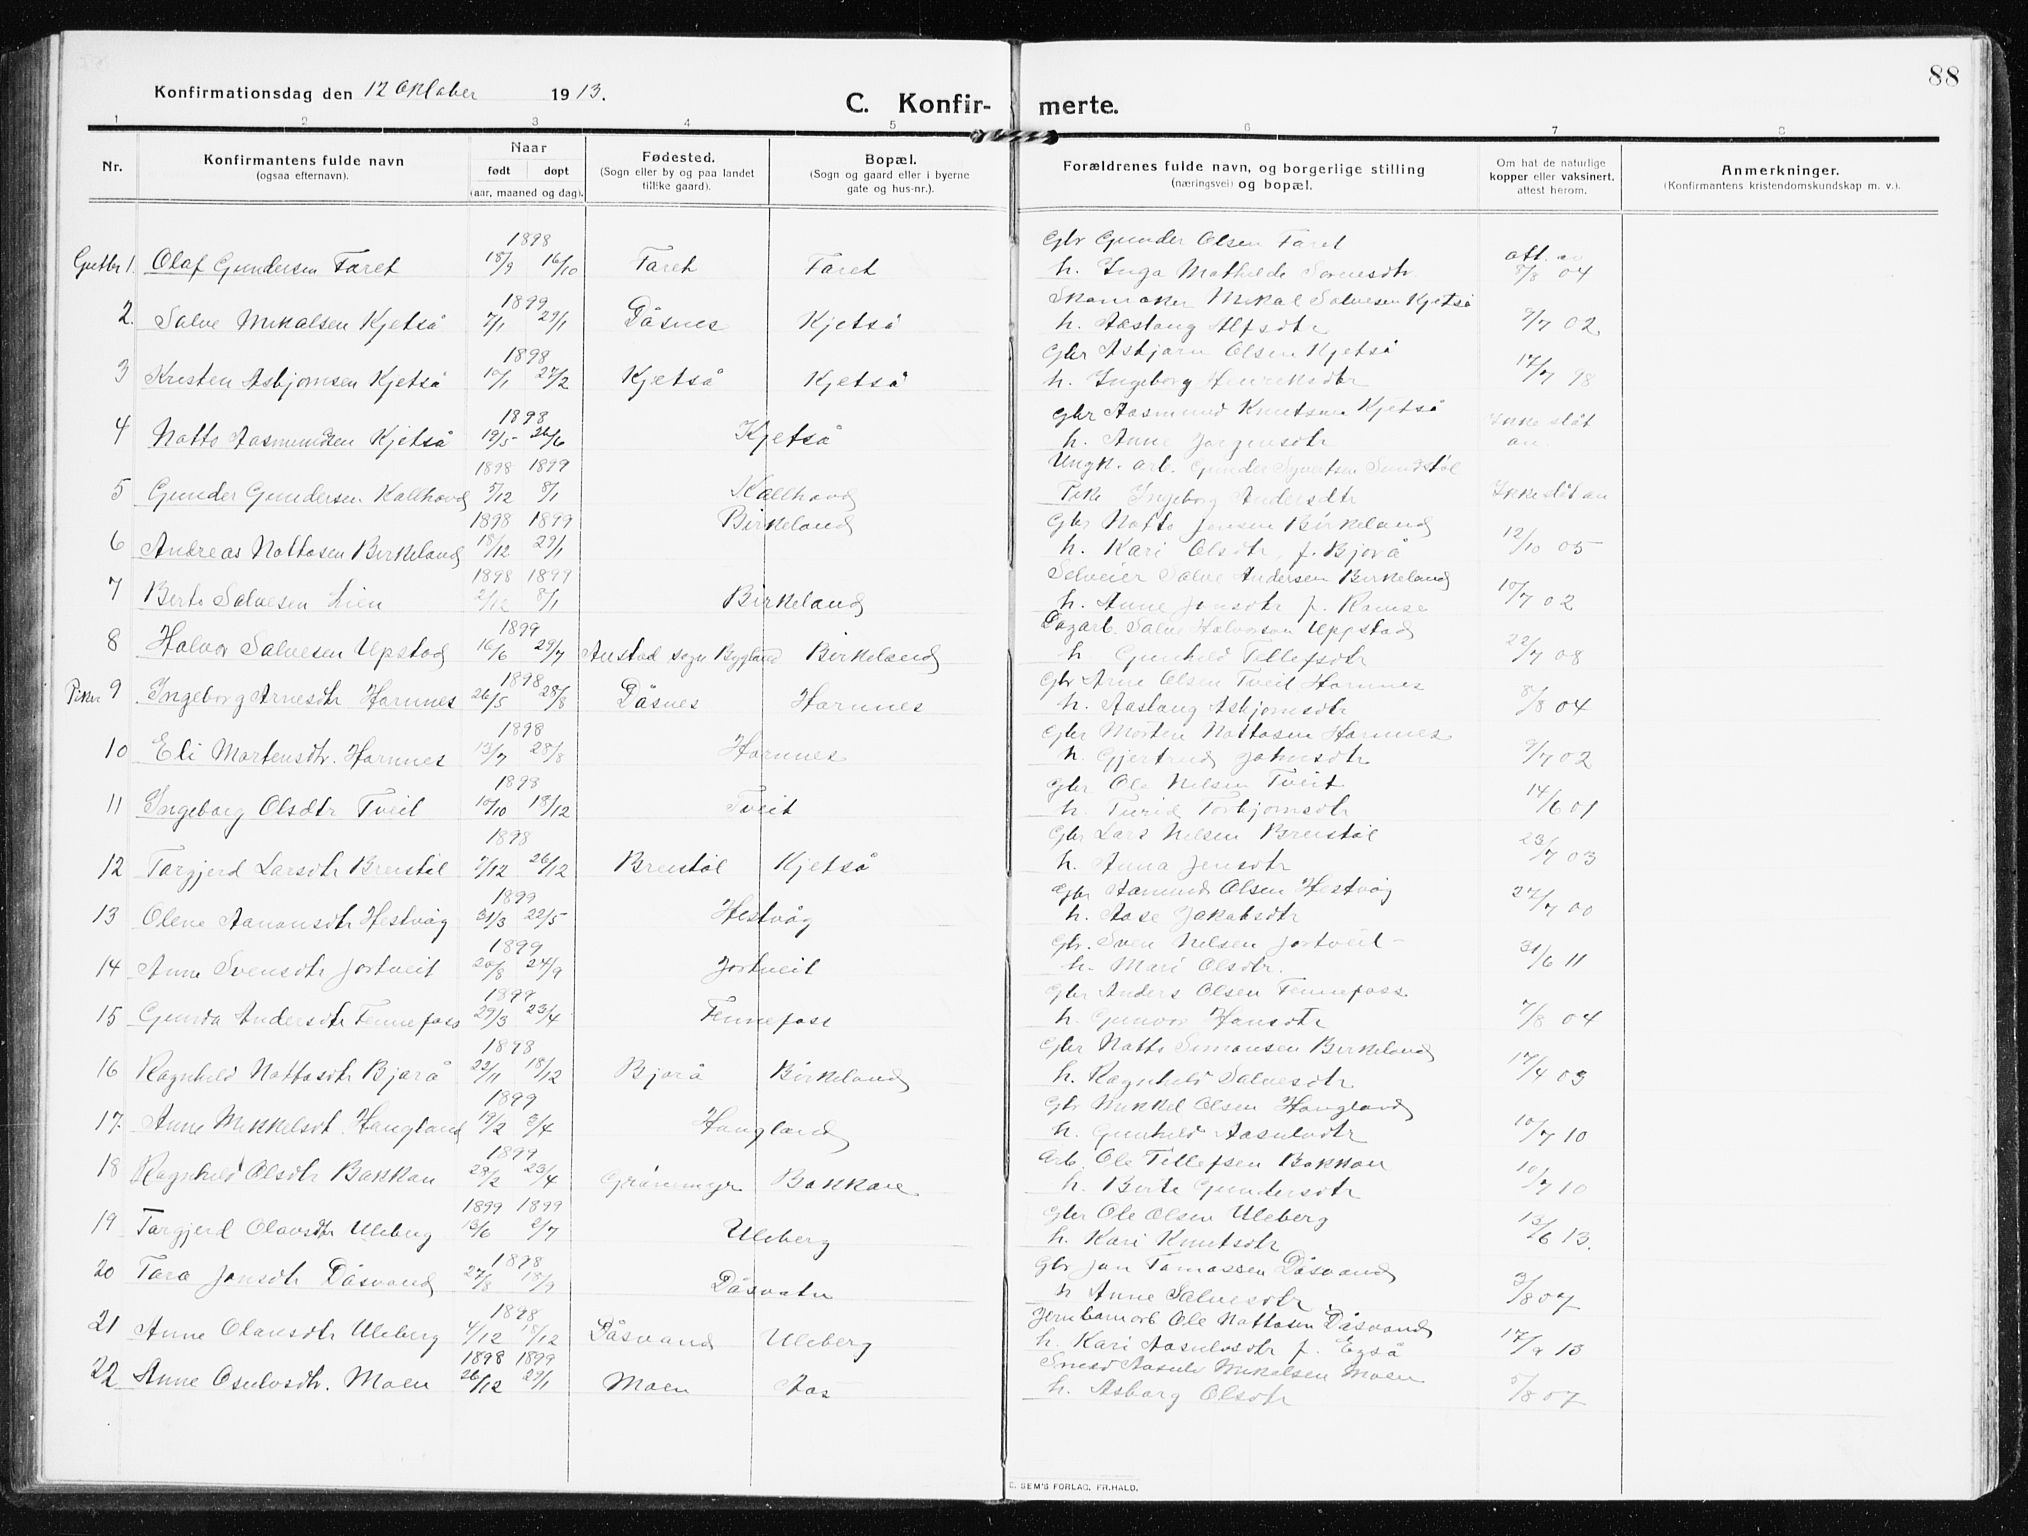 88
Konfirmationsdag den 12 Oktober 1913.
C. Konfir- merte.
1 2 3 4 5 6 7 8
Nr.
Konfirmantens fulde navn
(ogsaa efternavn).
Naar
født døpt
(aar, maaned og dag).
Fødested.
(Sogn eller by og paa landet
tillike gaard).
Bopæl.
(Sogn og gaard eller i byerne
gate og hus-nr.).
Forældrenes fulde navn, og borgerlige stilling
(næringsvei) og bopæl.
Om hat de naturlige
kopper eller vaksinert,
attest herom.
Anmerkninger.
(Konfirmantens kristendomskundskap m. v.).
1898 Gbr Gunder Olsen Faret
Gutter 1. Olaf Gundersen Faret 18/9 16/10 Faret Faret h. Inga Mathilde 8/8 04
1899 Skomaker Mikal Salvesen Kjetså
2. Salve Mikalsen Kjetså 7/1 29/1 Dåsnes Kjetså h. Aaslaug Alfsdtr 9/7 02
1898 Gbr Asbjørn Olsen Kjetså
3 Kristen Asbjørnsen Kjetså 10/1 27/2 Kjetså Kjetså h. Ingeborg Henriksdtr 17/7 98
1898 Gbr Aasmund Knutsen Kjetså
4 Notto Aasmundsen Kjetså 19/5 26/6 Kjetså h. Anne Jørgensdtr Ikke slåt an.
1898 1899 Ungk. arb. Gunder Syvertsen
5 Gunder Gundersen Kallhovd 5/12 8/1 Kallhovd Pike Ingeborg Andersdtr Ikke slåt an
1898 1899 Birkeland Gbr Notto Jensen Birkeland
6 Andreas Nottosen Birkeland 18/12 29/1 h. Kari Olsdtr, f. Bjorå 12/10 05
1898 1899 Selveier Salve Andersen Birkeland
7 Berte Salvesen Lien 2/12 8/1 Birkeland h. Anne Jonsdtr f. Ramse 10/7 02
1899 Dagarb. Salve Halvorsen Uppstad
8 Halvor Salvesen Upstad 16/6 29/7 Austad sogn Bygland Birkeland h Gunhild Tellefsdtr 22/7 08
1898 Gbr Arne Olsen Tveit Hornnes
Piker 9 Ingeborg Arnesdtr Hornnes 26/5 28/8 Dåsnes Hornnes h. Aaslaug Asbjørnsdtr 8/8 04
1898 Gbr Morten Nottosen Hornnes
10 Eli Mortensdtr. Hornnes 13/7 28/8 Hornnes h. Gjertrud Johnsdtr 9/7 02
1898 Gbr Ole Nilsen Tveit
11 Ingeborg Olsdtr Tveit 10/10 18/12 Tveit h. Turid Torbjørnsdtr 14/6 01
1898 Gbr Lars Nilsen Breistøl
12 Torgjerd Larsdtr Breistøl 7/12 26/12 Breistøl Kjetså h. Anna Jensdtr 23/7 03
1899 Gbr Aanund Olsen Hestvåg
13 Olene Aanonsdtr Hestvåg 31/3 22/5 Hestvåg h. Aase Jakobsdtr 27/7 00
1899 Gbr. Sven Nilsen Jortveit
14 Anne Svensdtr Jortveit 20/8 24/9 Jortveit h. Mari Olsdtr. 31/6 11
1899 Gbr Anders Olsen Fennefoss
15 Gunda Andersdtr Fennefoss 29/3 23/4 Fennefoss h. Gunvor Hansdtr 7/8 04
1898 Gbr Notto Simonsen Birkeland
16 Ragnhild Nottosdtr Bjorå 22/11 18/12 Bjorå Birkeland h. Ragnhild Salvesdtr 17/4 03
1899 Gbr Mikkel Olsen Haugland
17. Anne Mikkelsdt. Haugland 19/2 3/4 Haugland h. Gunhild Aasulvdtr 10/7 10
1899 Arb. Ole Tellefsen Bakkan
18 Ragnhild Olsdtr Bakkan 28/2 23/4 Grånemyr Bakkane h. Berte Gundersdtr 10/7 10
1899 1899 Gbr Ole Olsen Uleberg
19 Torgjerd Olavsdtr Uleberg 13/6 2/7 Uleberg h. Kari Knutsdtr 13/6 13.
1898 Gbr Jon Tomassen Dåsvand
20 Tora Jonsdtr Dåsvand 27/8 18/9 Dåsvatn h Anne Salvesdtr 3/8 07
1898 Jernbanearb Ole Nottosen Dåsvand
21 Anne Olavsdtr Uleberg 4/12 18/12 Dåsvand Uleberg h. Kari Aasulvsdtr f. Egså 17/9 13
1898 1899 Smed Aasulv Mikalsen Moen
22 Anne Osulvsdtr. Moen 26/12 29/1 Moen Aas h. Asborg Olsdtr 5/8 07
E. SEM'S FORLAG, FR.HALD.